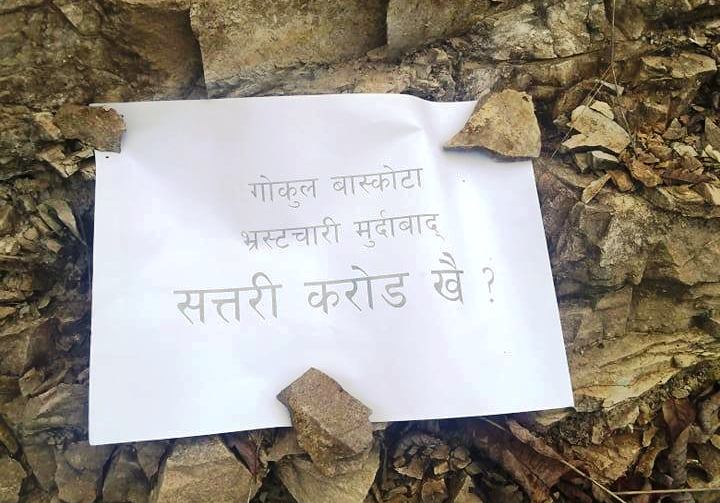 गोकुल बास्कोटा
भ्रस्टचारी मुर्दाबाद्
सत्तरी करोड खै ?